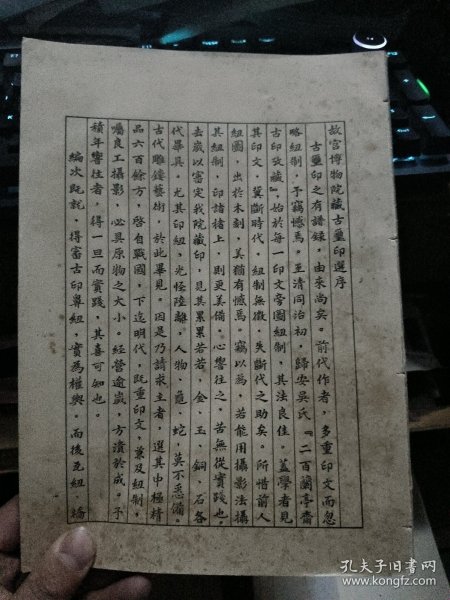 故宫博物院藏古璽印選序
古璽印之有譜録，由來尚矣。前代作者，多重印文而忽
略紐制，予竊憾焉。至清同治初，歸安吳氏『二百蘭亭齋
古印攷藏』，始於每一印文旁圖紐制，其法良佳。蓋學者見
其印文，冀斷時代，紐制無徵，失斷代之助矣。所惜前人
紐圖，出於木刻，美猶有憾焉。竊以為，若能用攝影法攝
其紐制，印諸楮上，則更美備。心嚮往之，苦無從實踐也。
去歲以審定我院藏印，見其累累若若，金、玉、銅、石各
代畢具。尤其印紐，光怪陸離，人物、龜、蛇，莫不悉備。
古代雕鏤藝術，於此畢見。因是乃請求主者，選其中極精
品六百餘方，啓自戰國，下迄明代，既重印文，兼及紐制，
囑良工攝影，必具原物之大小。經營逾歲，方潰於成。予
積年嚮往者，得一旦而實踐，其喜可知也。
編次既就，得審古印鼻紐，實為權輿。而後瓦紐、橋
孔夫子旧书网
www.kongfz.com